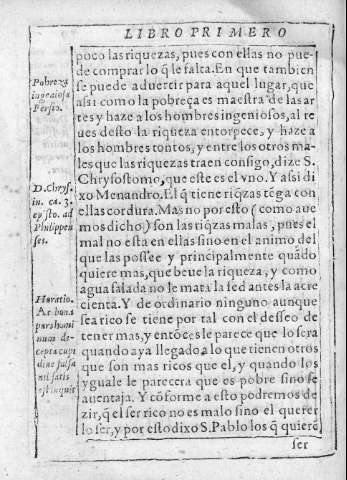 LIBRO PRIMERO
poco las riquezas, pues con ellas no pue
de comprar lo q̃ le falta. En que tambien
se puede aduertir para aquel lugar, que
assi como la pobreça es maestra de las ar
tes y haze a los hombres ingeniosos, al re
ues desto la riqueza entorpece, y haze a
los hombres tontos, y entre los otros ma-
les que las riquezas traen consigo, dize S.
Chrysostomo, que este es el vno. Y assi di
xo Menandro. El q̃ tiene riq̃zas tẽga con
ellas cordura. Mas no por esto (como aue
mos dicho) son las riq̃zas malas, pues el
mal no esta en ellas sino en el animo del
que las possee y principalmente quãdo
quiere mas, que beue la riqueza, y como
agua salada no le mata la sed antes la acre
cienta. Y de ordinario ninguno aunque
sea rico se tiene por tal con el desseo de
tener mas, y entõces le parece que lo sera
quando aya llegado a lo que tienen otros
que son mas ricos que el, y quando los
yguale le parecera que es pobre sino se
auentaja. Y cõforme a esto podremos de
zir, q̃ el ser rico no es malo sino el querer
lo ser, y por esto dixo S. Pablo los q̃ quierẽ
ser
Pobreza
ingeniosa
Persio.
D. Chrys.
in. ca. 3.
epist. ad
Philippen
ses.
Horatio.
At bona
pars homi
num de-
cepta cupi
dine falso
nil satis
est inquit